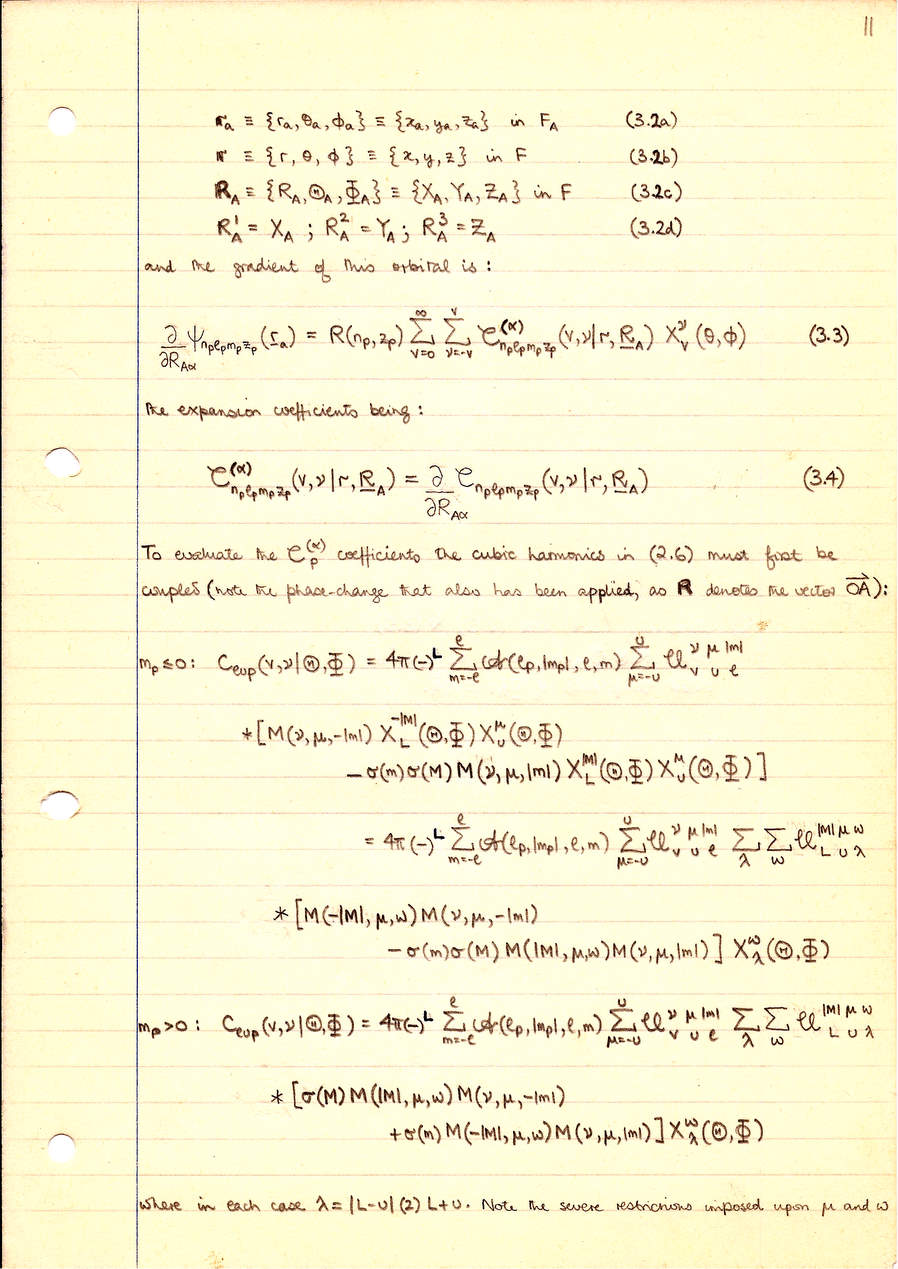 11
𝐫ₐ ≡ {rₐ, θₐ, ϕₐ} ≡ {xₐ, yₐ, zₐ} in F_A (3.2a)
𝐫 ≡ {r, θ, ϕ} ≡ {x, y, z} in F (3.2b)
𝐑_A ≡ {R_A, Θ_A, Φ_A} ≡ {X_A, Y_A, Z_A} in F (3.2c)
R_A^1 = X_A ; R_A^2 = Y_A ; R_A^3 = Z_A (3.2d)
and the gradient of this orbital is :
∂/∂R_{Aα} ψ_{n_p ℓ_p m_p z_p}(r_a) = R(n_p, z_p) ∑_{v=0}^{∞} ∑_{ν=-v}^{v} 𝒞^{(α)}_{n_p ℓ_p m_p z_p}(v, ν | r, R_A) X_v^ν(θ, ϕ) (3.3)
the expansion coefficients being :
𝒞^{(α)}_{n_p ℓ_p m_p z_p}(v, ν | r, R_A) = ∂/∂R_{Aα} 𝒞_{n_p ℓ_p m_p z_p}(v, ν | r, R_A) (3.4)
To evaluate the 𝒞_p^{(α)} coefficients the cubic harmonics in (2.6) must first be
coupled (note the phase-change that also has been applied, as 𝐑 denotes the vector \overrightarrow{OA}):
m_p ≤ 0 : C_{ℓυp}(v, ν | Θ, Φ) = 4π(-)^L ∑_{m=-ℓ}^{ℓ} 𝒜(ℓ_p, |m_p|, ℓ, m) ∑_{μ=-υ}^{υ} 𝒰^{ν μ |m|}_{v υ ℓ}
* [M(ν, μ, -|m|) X_L^{-|M|}(Θ, Φ) X_υ^μ(Θ, Φ)
- σ(m)σ(M) M(ν, μ, |m|) X_L^{|M|}(Θ, Φ) X_υ^μ(Θ, Φ)]
= 4π(-)^L ∑_{m=-ℓ}^{ℓ} 𝒜(ℓ_p, |m_p|, ℓ, m) ∑_{μ=-υ}^{υ} 𝒰^{ν μ |m|}_{v υ ℓ} ∑_λ ∑_ω 𝒰^{|M| μ ω}_{L υ λ}
* [M(-|M|, μ, ω) M(ν, μ, -|m|)
- σ(m)σ(M) M(|M|, μ, ω) M(ν, μ, |m|)] X_λ^ω(Θ, Φ)
m_p > 0 : C_{ℓυp}(v, ν | Θ, Φ) = 4π(-)^L ∑_{m=-ℓ}^{ℓ} 𝒜(ℓ_p, |m_p|, ℓ, m) ∑_{μ=-υ}^{υ} 𝒰^{ν μ |m|}_{v υ ℓ} ∑_λ ∑_ω 𝒰^{|M| μ ω}_{L υ λ}
* [σ(M) M(|M|, μ, ω) M(ν, μ, -|m|)
+ σ(m) M(-|M|, μ, ω) M(ν, μ, |m|)] X_λ^ω(Θ, Φ)
where in each case λ = |L-υ| (2) L+υ. Note the severe restrictions imposed upon μ and ω